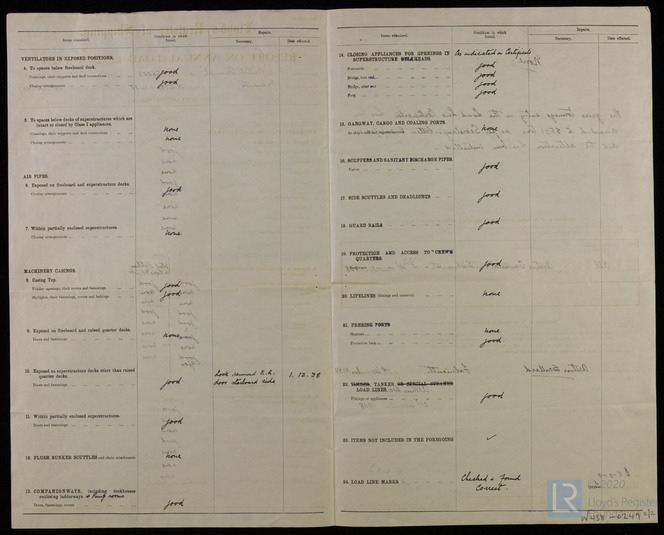 Items examined.
Condition in which found.
Repairs.
Necessary.
Date effected.
VENTILATORS IN EXPOSED POSITIONS.
4. To spaces below freeboard deck.
Coamings, their supports and deck connections
good
Closing arrangements
good
5. To spaces below decks of superstructures which are intact or closed by Class I appliances.
Coamings, their supports and deck connections
none
Closing arrangements
none
AIR PIPES
6. Exposed on freeboard and superstructure decks.
Closing arrangements
good
7. Within partially enclosed superstructures
Closing arrangements
none
MACHINERY CASINGS.
8. Casing Top.
Fiddley openings, their covers and fastenings
good
Skylights, their fastenings, covers and fastenings
good
9. Exposed on freeboard and raised quarter decks.
Doors and fastenings
none
10. Exposed on superstructure decks other than raised quarter decks.
Doors and fastenings
good
Lock removed E.R.
door starboard side
1. 12. 38
11. Within partially enclosed superstructures.
Doors and fastenings
good
12. FLUSH BUNKER SCUTTLES and chain attachments
none
13. COMPANIONWAYS, including deckhouses enclosing ladderways & Pump rooms
Doors, fastenings, covers
good
Items examined.
Condition in which found.
Repairs.
Necessary.
Date effected.
14. CLOSING APPLIANCES FOR OPENINGS IN SUPERSTRUCTURE BULKHEADS.
As indicated in Certificate
Forecastle
good
Bridge, fore end
good
Bridge, after end
good
Poop
good
15. GANGWAY, CARGO AND COALING PORTS
none
16. SCUPPERS AND SANITARY DISCHARGE PIPES.
Valves
good
17. SIDE SCUTTLES AND DEADLIGHTS
good
18. GUARD RAILS
good
19. PROTECTION AND ACCESS TO CREW'S QUARTERS.
good
20. LIFELINES (fittings and material)
none
21. FREEING PORTS
Shutters
none
Protection bars
good
22. TIMBER, TANKER OR SPECIAL STEAMER LOAD LINES.
Fittings or appliances
good
23. ITEMS NOT INCLUDED IN THE FOREGOING
✓
24. LOAD LINE MARKS
Checked & Found
Correct.
LR
© 2020
Lloyd's Register
W438-0249 2/2